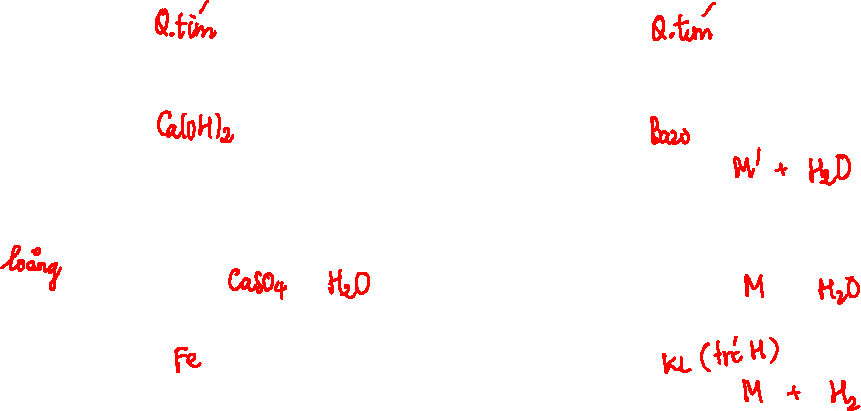 Q.tím Q.tím
Ca(OH)2 Bazo
M' + H2O
loãng
CaSO4 H2O M H2O
Fe KL (trc H)
M + H2